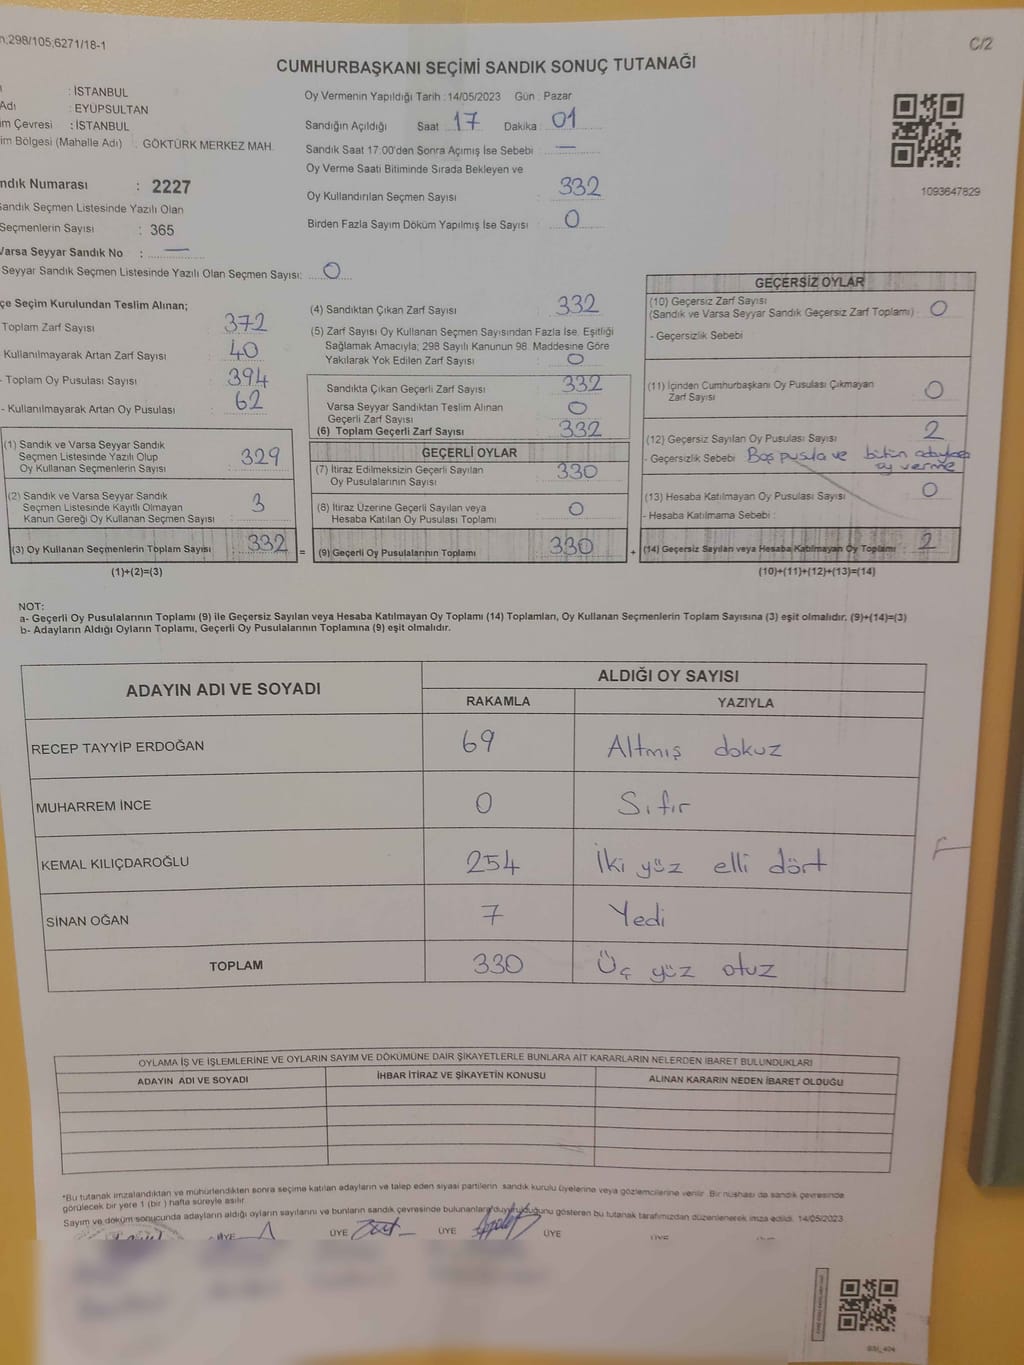 298/105;6271/18-1
C/2
CUMHURBAŞKANI SEÇİMİ SANDIK SONUÇ TUTANAĞI
: İSTANBUL
Adı : EYÜPSULTAN
im Çevresi : İSTANBUL
im Bölgesi (Mahalle Adı) : GÖKTÜRK MERKEZ MAH.
ndık Numarası : 2227
Sandık Seçmen Listesinde Yazılı Olan
Seçmenlerin Sayısı : 365
Varsa Seyyar Sandık No : —
Seyyar Sandık Seçmen Listesinde Yazılı Olan Seçmen Sayısı: 0
Oy Vermenin Yapıldığı Tarih : 14/05/2023 Gün : Pazar
Sandığın Açıldığı Saat 17 Dakika 01
Sandık Saat 17.00'den Sonra Açımış İse Sebebi : —
Oy Verme Saati Bitiminde Sırada Bekleyen ve
Oy Kullandırılan Seçmen Sayısı : 332
Birden Fazla Sayım Döküm Yapılmış İse Sayısı : 0
1093647829
çe Seçim Kurulundan Teslim Alınan;
Toplam Zarf Sayısı : 372
Kullanılmayarak Artan Zarf Sayısı : 40
- Toplam Oy Pusulası Sayısı : 394
- Kullanılmayarak Artan Oy Pusulası : 62
(1) Sandık ve Varsa Seyyar Sandık
Seçmen Listesinde Yazılı Olup
Oy Kullanan Seçmenlerin Sayısı : 329
(2) Sandık ve Varsa Seyyar Sandık
Seçmen Listesinde Kayıtlı Olmayan
Kanun Gereği Oy Kullanan Seçmen Sayısı : 3
(3) Oy Kullanan Seçmenlerin Toplam Sayısı : 332 =
(1)+(2)=(3)
(4) Sandıktan Çıkan Zarf Sayısı : 332
(5) Zarf Sayısı Oy Kullanan Seçmen Sayısından Fazla İse, Eşitliği
Sağlamak Amacıyla; 298 Sayılı Kanunun 98. Maddesine Göre
Yakılarak Yok Edilen Zarf Sayısı : 0
Sandıkta Çıkan Geçerli Zarf Sayısı : 332
Varsa Seyyar Sandıktan Teslim Alınan
Geçerli Zarf Sayısı : 0
(6) Toplam Geçerli Zarf Sayısı : 332
GEÇERLİ OYLAR
(7) İtiraz Edilmeksizin Geçerli Sayılan
Oy Pusulalarının Sayısı : 330
(8) İtiraz Üzerine Geçerli Sayılan veya
Hesaba Katılan Oy Pusulası Toplamı : 0
(9) Geçerli Oy Pusulalarının Toplamı : 330 +
GEÇERSİZ OYLAR
(10) Geçersiz Zarf Sayısı
(Sandık ve Varsa Seyyar Sandık Geçersiz Zarf Toplamı) : 0
- Geçersizlik Sebebi
(11) İçinden Cumhurbaşkanı Oy Pusulası Çıkmayan
Zarf Sayısı : 0
(12) Geçersiz Sayılan Oy Pusulası Sayısı : 2
- Geçersizlik Sebebi : Boş pusula ve bütün adaylara
oy verme
(13) Hesaba Katılmayan Oy Pusulası Sayısı : 0
- Hesaba Katılmama Sebebi :
(14) Geçersiz Sayılan veya Hesaba Katılmayan Oy Toplamı : 2
(10)+(11)+(12)+(13)=(14)
NOT:
a- Geçerli Oy Pusulalarının Toplamı (9) ile Geçersiz Sayılan veya Hesaba Katılmayan Oy Toplamı (14) Toplamları, Oy Kullanan Seçmenlerin Toplam Sayısına (3) eşit olmalıdır. (9)+(14)=(3)
b- Adayların Aldığı Oyların Toplamı, Geçerli Oy Pusulalarının Toplamına (9) eşit olmalıdır.
ADAYIN ADI VE SOYADI
ALDIĞI OY SAYISI
RAKAMLA YAZIYLA
RECEP TAYYİP ERDOĞAN 69 Altmış dokuz
MUHARREM İNCE 0 Sıfır
KEMAL KILIÇDAROĞLU 254 İki yüz elli dört
SİNAN OĞAN 7 Yedi
TOPLAM 330 Üç yüz otuz
OYLAMA İŞ VE İŞLEMLERİNE VE OYLARIN SAYIM VE DÖKÜMÜNE DAİR ŞİKAYETLERLE BUNLARA AİT KARARLARIN NELERDEN İBARET BULUNDUKLARI
ADAYIN ADI VE SOYADI İHBAR İTİRAZ VE ŞİKAYETİN KONUSU ALINAN KARARIN NEDEN İBARET OLDUĞU
*Bu tutanak imzalandıktan ve mühürlendikten sonra seçime katılan adayların ve talep eden siyasi partilerin sandık kurulu üyelerine veya gözlemcilerine verilir. Bir nüshası da sandık çevresinde
görülecek bir yere 1 (bir) hafta süreyle asılır.
Sayım ve döküm sonucunda adayların aldığı oyların sayılarını ve bunların sandık çevresinde bulunanlara duyurulduğunu gösteren bu tutanak tarafımızdan düzenlenerek imza edildi. 14/05/2023
ÜYE ÜYE ÜYE ÜYE ÜYE